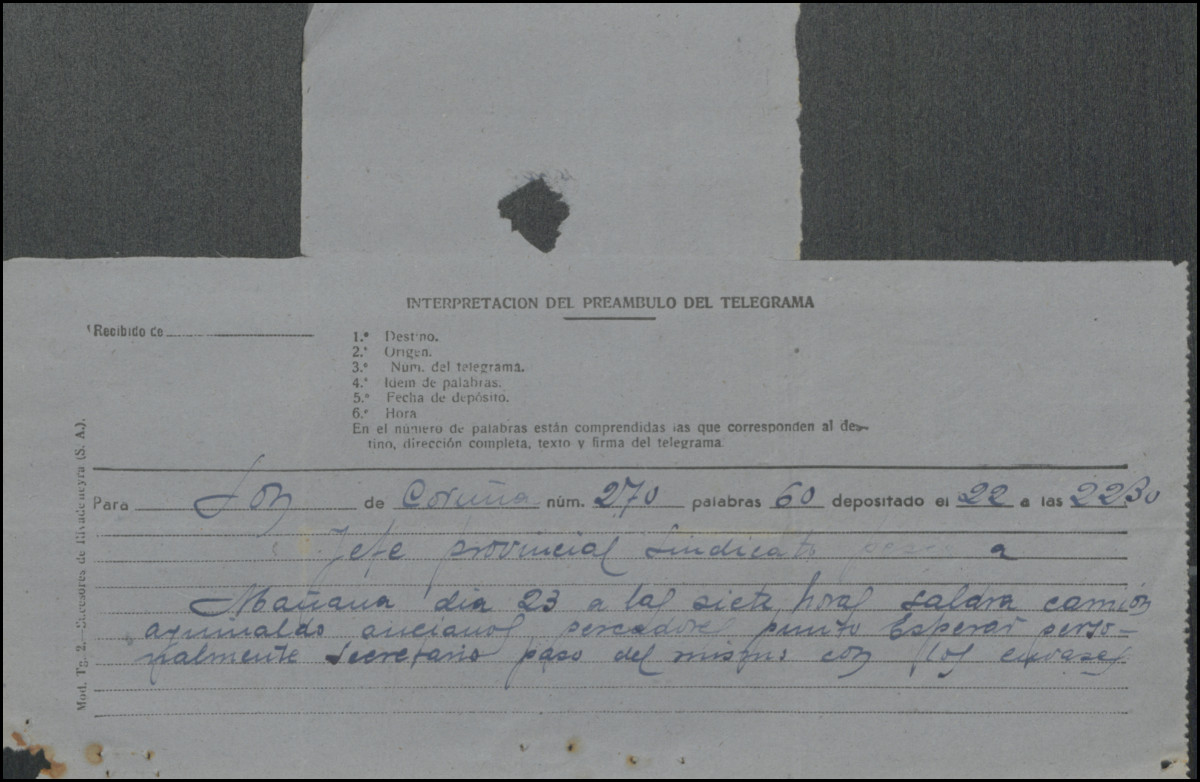 INTERPRETACION DEL PREAMBULO DEL TELEGRAMA
Recibido de
1.º Destino.
2.º Origen.
3.º Núm. del telegrama.
4.º Idem de palabras.
5.º Fecha de depósito.
6.º Hora
En el número de palabras están comprendidas las que corresponden al des-
tino, dirección completa, texto y firma del telegrama.
Para Son de Coruña núm. 270 palabras 60 depositado el 22 a las 2230
Jefe provincial Sindicato a
Mañana dia 23 a las siete horas saldra camion
aguinaldo ancianos pescadores punto Esperar perso-
nalmente secretario paso del mismo con los envases
Mod. Tg. 2.—Sucesores de Rivadeneyra (S. A.).